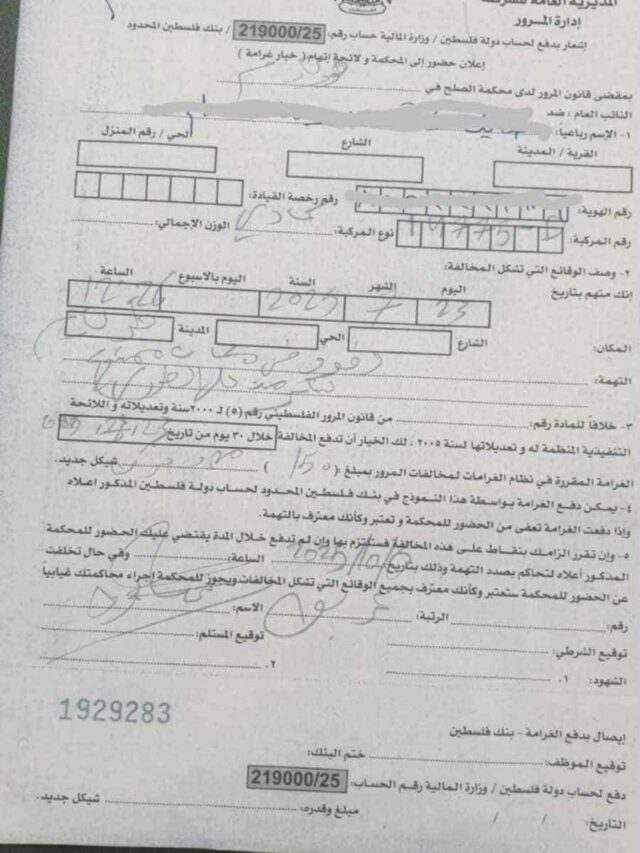 المديرية العامة للشرطة
إدارة المرور
إشعار بدفع لحساب دولة فلسطين / وزارة المالية حساب رقم: 219000/25 / بنك فلسطين المحدود
إعلان حضور إلى المحكمة و لائحة إتهام ( خيار غرامة )
بمقضى قانون المرور لدى محكمة الصلح في
النائب العام : ضد
١- الإسم رباعيا:
القرية / المدينة الشارع الحي / رقم المنزل
رقم الهوية: رقم رخصة القيادة:
رقم المركبة: نوع المركبة: الوزن الإجمالي:
٢- وصف الوقائع التي تشكل المخالفة:
اليوم الشهر السنة اليوم بالاسبوع الساعة
إنك متهم بتاريخ 23 7 2025 12:26
المكان: الشارع الحي المدينة
التهمة:
٣- خلافاً للمادة رقم: من قانون المرور الفلسطيني رقم (٥) لـ ٢٠٠٠ سنة وتعديلاته و اللائحة
التنفيذية المنظمة له و تعديلاتها لسنة ٢٠٠٥ ، لك الخيار أن تدفع المخالفة خلال ٣٠ يوم من تاريخ
الغرامة المقررة في نظام الغرامات لمخالفات المرور بمبلغ (150) شيكل جديد.
٤- يمكن دفع الغرامة بواسطة هذا النموذج في بنك فلسطين المحدود لحساب دولة فلسطين المذكور اعلاه
وإذا دفعت الغرامة تعفى من الحضور للمحكمة و تعتبر وكأنك معترف بالتهمة.
٥- وإن تقرر الزامك بنقاط على هذه المخالفة فستلتزم بها وإن لم تدفع خلال المدة يقتضي عليك الحضور للمحكمة
المذكور أعلاه لتحاكم بصدد التهمة وذلك بتاريخ الساعة: وفي حال تخلفت
عن الحضور للمحكمة ستعتبر وكأنك معترف بجميع الوقائع التي تشكل المخالفات ويجوز للمحكمة إجراء محاكمتك غيابياً
رقم: الرتبة: الاسم:
توقيع الشرطي: توقيع المستلم:
الشهود: ١. ٢.
1929283
إيصال بدفع الغرامة - بنك فلسطين
توقيع الموظف: ختم البنك:
دفع لحساب دولة فلسطين / وزارة المالية رقم الحساب: 219000/25
التاريخ: / / مبلغ وقدره: شيكل جديد.